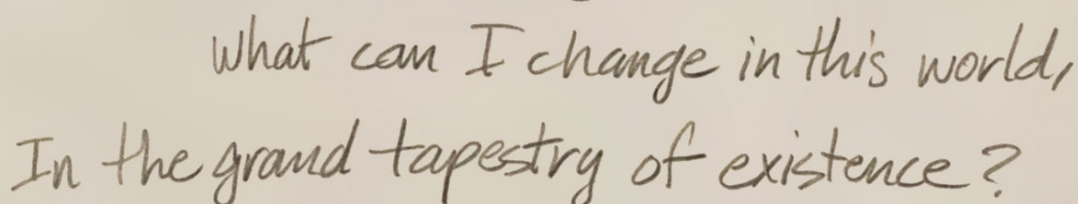 What can I change in this world,
In the grand tapestry of existence?